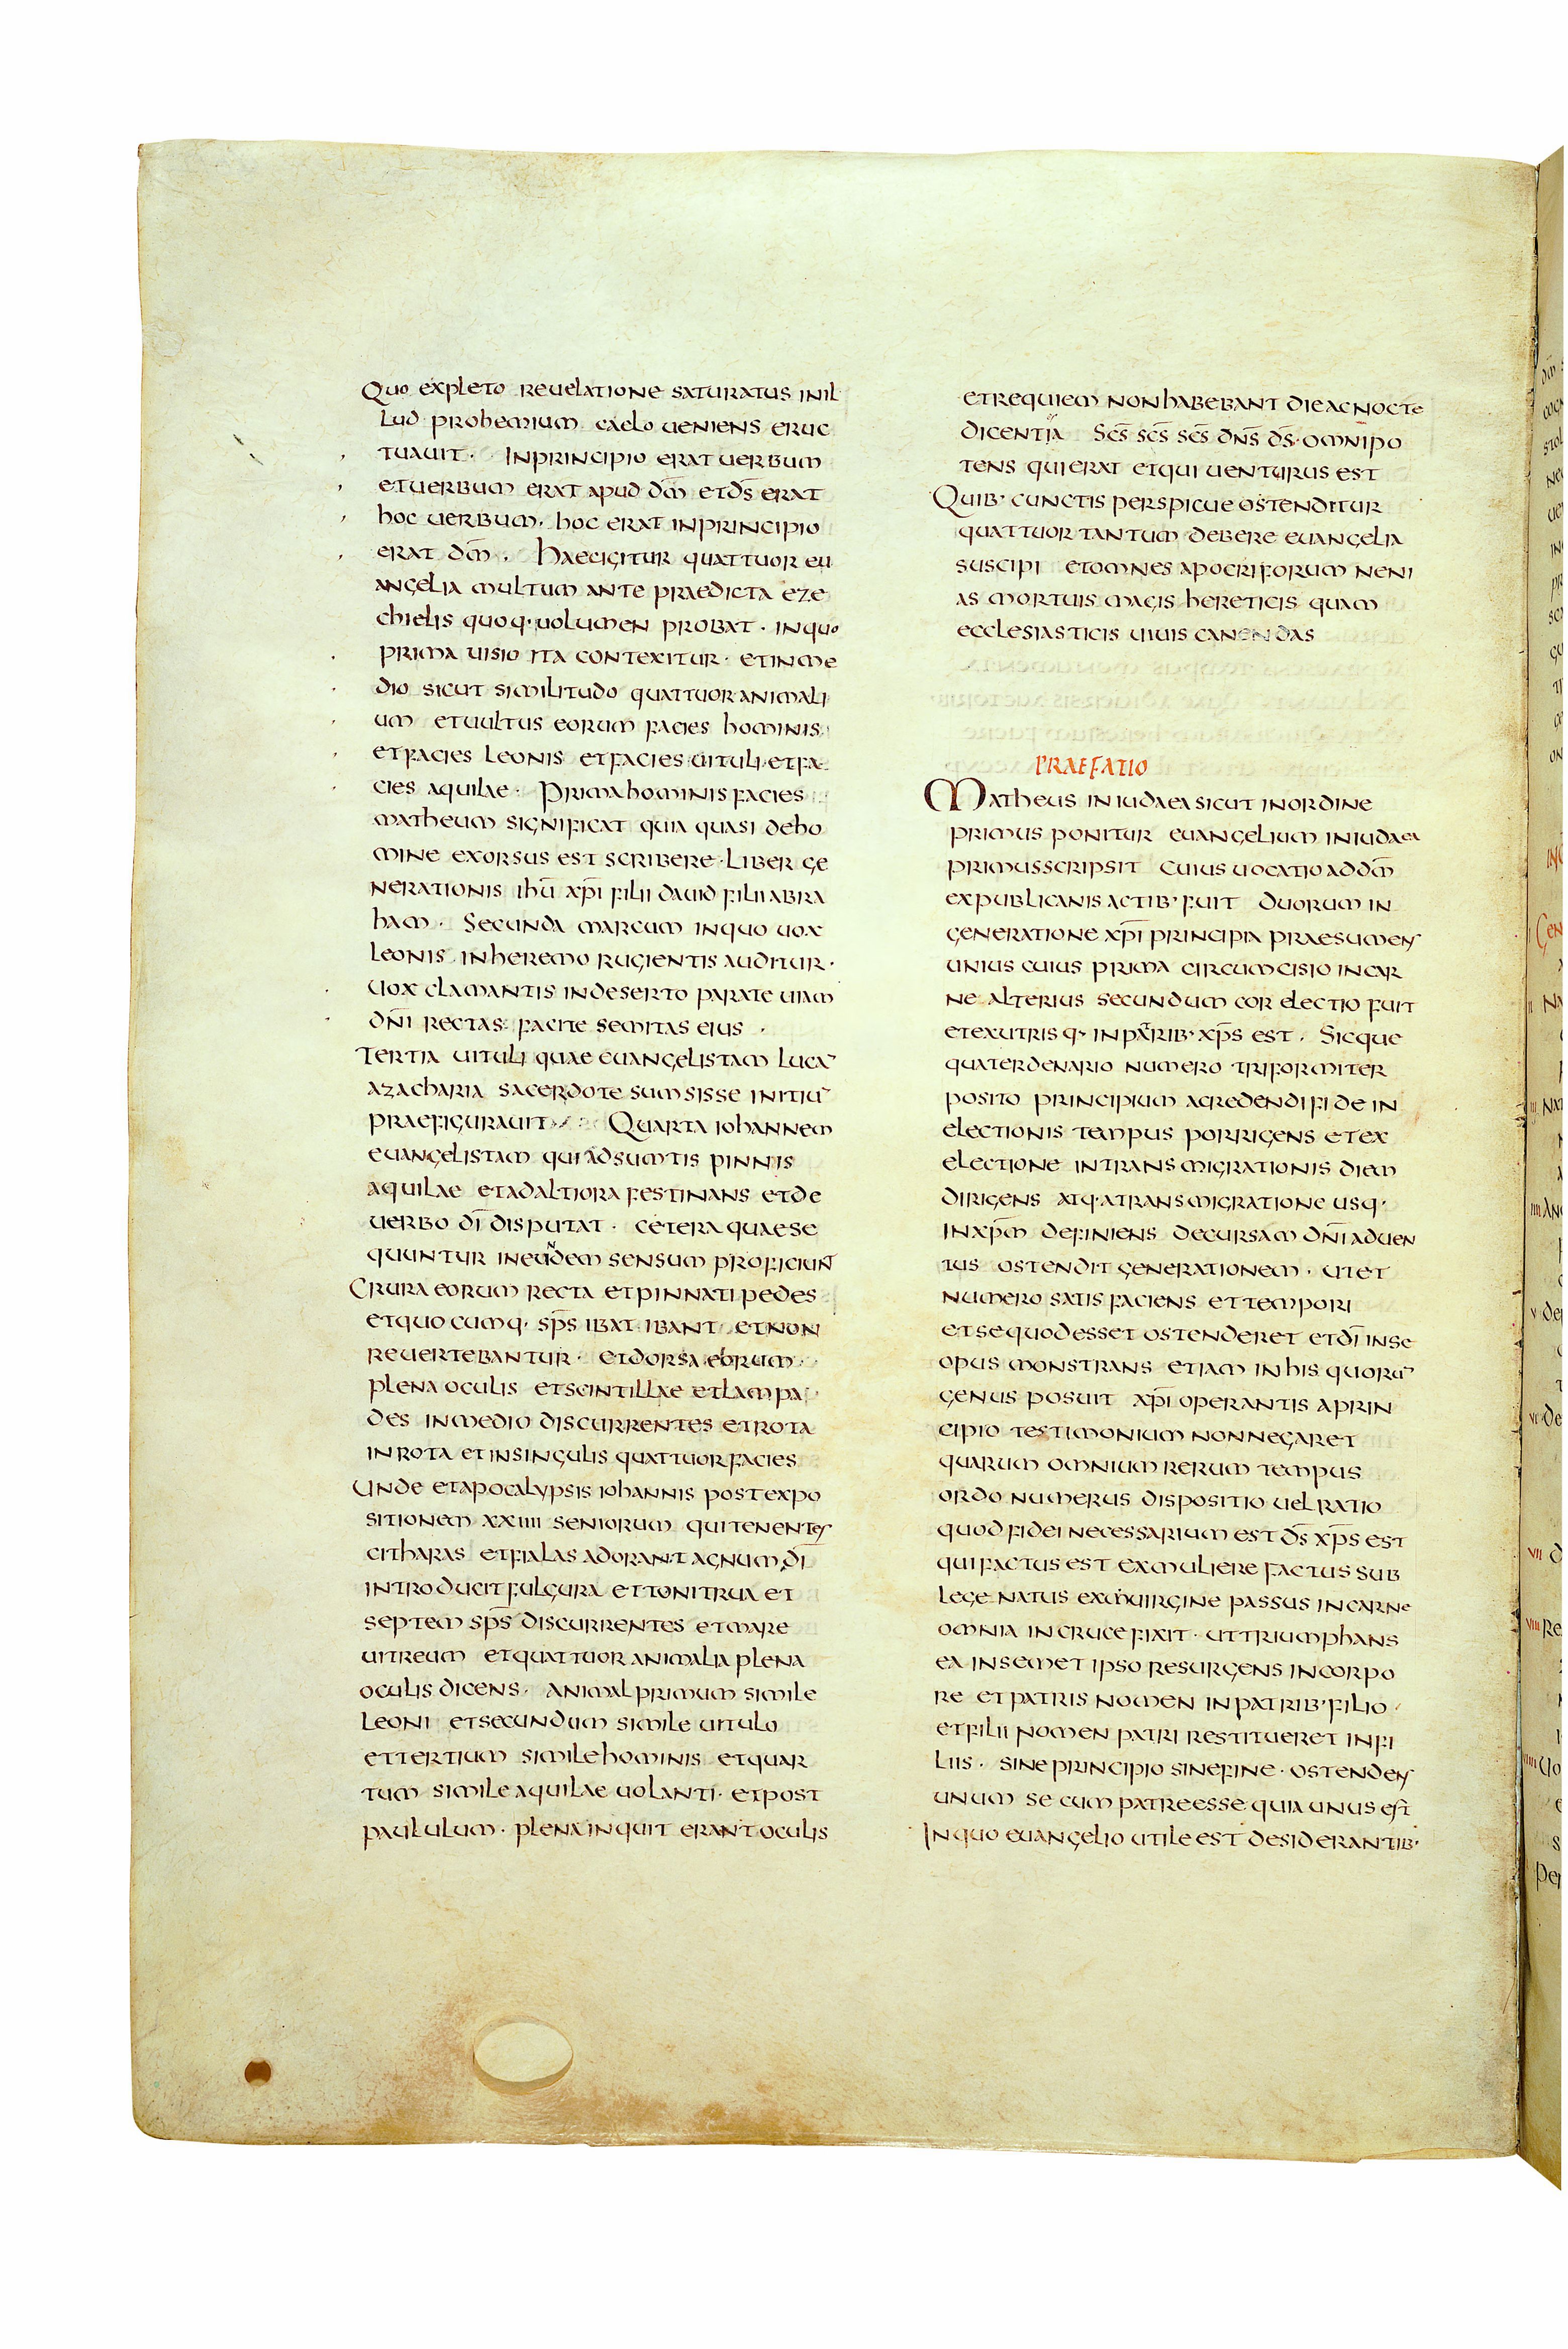 Quo expleto reuelatione saturatus inil
lud prohemium caelo ueniens eruc
tuauit · Inprincipio erat uerbum
etuerbum erat apud dm̄ etds̄ erat
hoc uerbum · hoc erat inprincipio
erat dm̄ · Haecigitur quattuor eu
angelia multum ante praedicta eze
chielis quoq· uolumen probat · inquo
prima uisio ita contexitur · etinme
dio sicut similitudo quattuor animali
um etuultus eorum facies hominis
etfacies leonis etfacies uituli · etfa
cies aquilae · Prima hominis facies
matheum significat quia quasi deho
mine exorsus est scribere · Liber ge
nerationis ihū xp̄i filii dauid filii abra
ham · Secunda marcum inquo uox
leonis inheremo rugientis auditur ·
uox clamantis indeserto parate uiam
dn̄i rectas facite semitas eius ·
Tertia uituli quae euangelistam luca̅
azacharia sacerdote sumsisse initiu̅
praefigurauit · Quarta iohannem
euangelistam qui adsumtis pinnis
aquilae etadaltiora festinans etde
uerbo dī disputat · cetera quaese
quuntur ineundem sensum proficiunt
Crura eorum recta etpinnati pedes
etquocumq· sps̄ ibat ibant etnon
reuertebantur · etdorsa eorum ·
plena oculis etscintillae etlampa
des inmedio discurrentes etrota
inrota etinsingulis quattuor facies
Unde etapocalypsis iohannis postexpo
sitionem xxiiii seniorum quitenentes
citharas etfialas adorant agnum dī
introducit fulgura ettonitrua et
septem sps̄ discurrentes etmare
uitreum etquattuor animalia plena
oculis dicens · Animal primum simile
leoni etsecundum simile uitulo
ettertium simile hominis etquar
tum simile aquilae uolanti · etpost
paululum · plena inquit erant oculis
etrequiem nonhabebant dieacnocte
dicentia Sc̄s sc̄s sc̄s dn̄s ds̄ · omnipo
tens quierat etqui uenturus est
Quib· cunctis perspicue ostenditur
quattuor tantum debere euangelia
suscipi etomnes apocriforum neni
as mortuis magis hereticis quam
ecclesiasticis uiuis canendas
PRAEFATIO
Matheus iniudaea sicut inordine
primus ponitur euangelium iniudaea
primusscripsit cuius uocatio addm̄
expublicanis actib· fuit duorum in
generatione xp̄i principia praesumens
unius cuius prima circumcisio incar
ne alterius secundum cor electio fuit
etexutrisq· inpatrib· xps̄ est · Sicque
quaterdenario numero triformiter
posito principium acredendi fide in
electionis tempus porrigens etex
electione intransmigrationis diem
dirigens atq· atransmigratione usq·
inxpm̄ definiens decursam dn̄i aduen
tus ostendit generationem · utet
numero satisfaciens ettempori
etsequodesset ostenderet etdī inse
opus monstrans etiam inhis quoru̅
genus posuit xp̄i operantis aprin
cipio testimonium nonnegaret
quarum omnium rerum tempus
ordo numerus dispositio uel ratio
quod fidei necessarium est ds̄ xps̄ est
quifactus est exmuliere factus sub
lege natus exuirgine passus incarne
omnia incruce fixit · uttriumphans
ea insemet ipso resurgens incorpo
re etpatris nomen inpatrib· filio
etfilii nomen patri restitueret infi
liis · sine principio sinefine · ostendens
unum se cum patreesse quia unus est
Inquo euangelio utile est desiderantib·